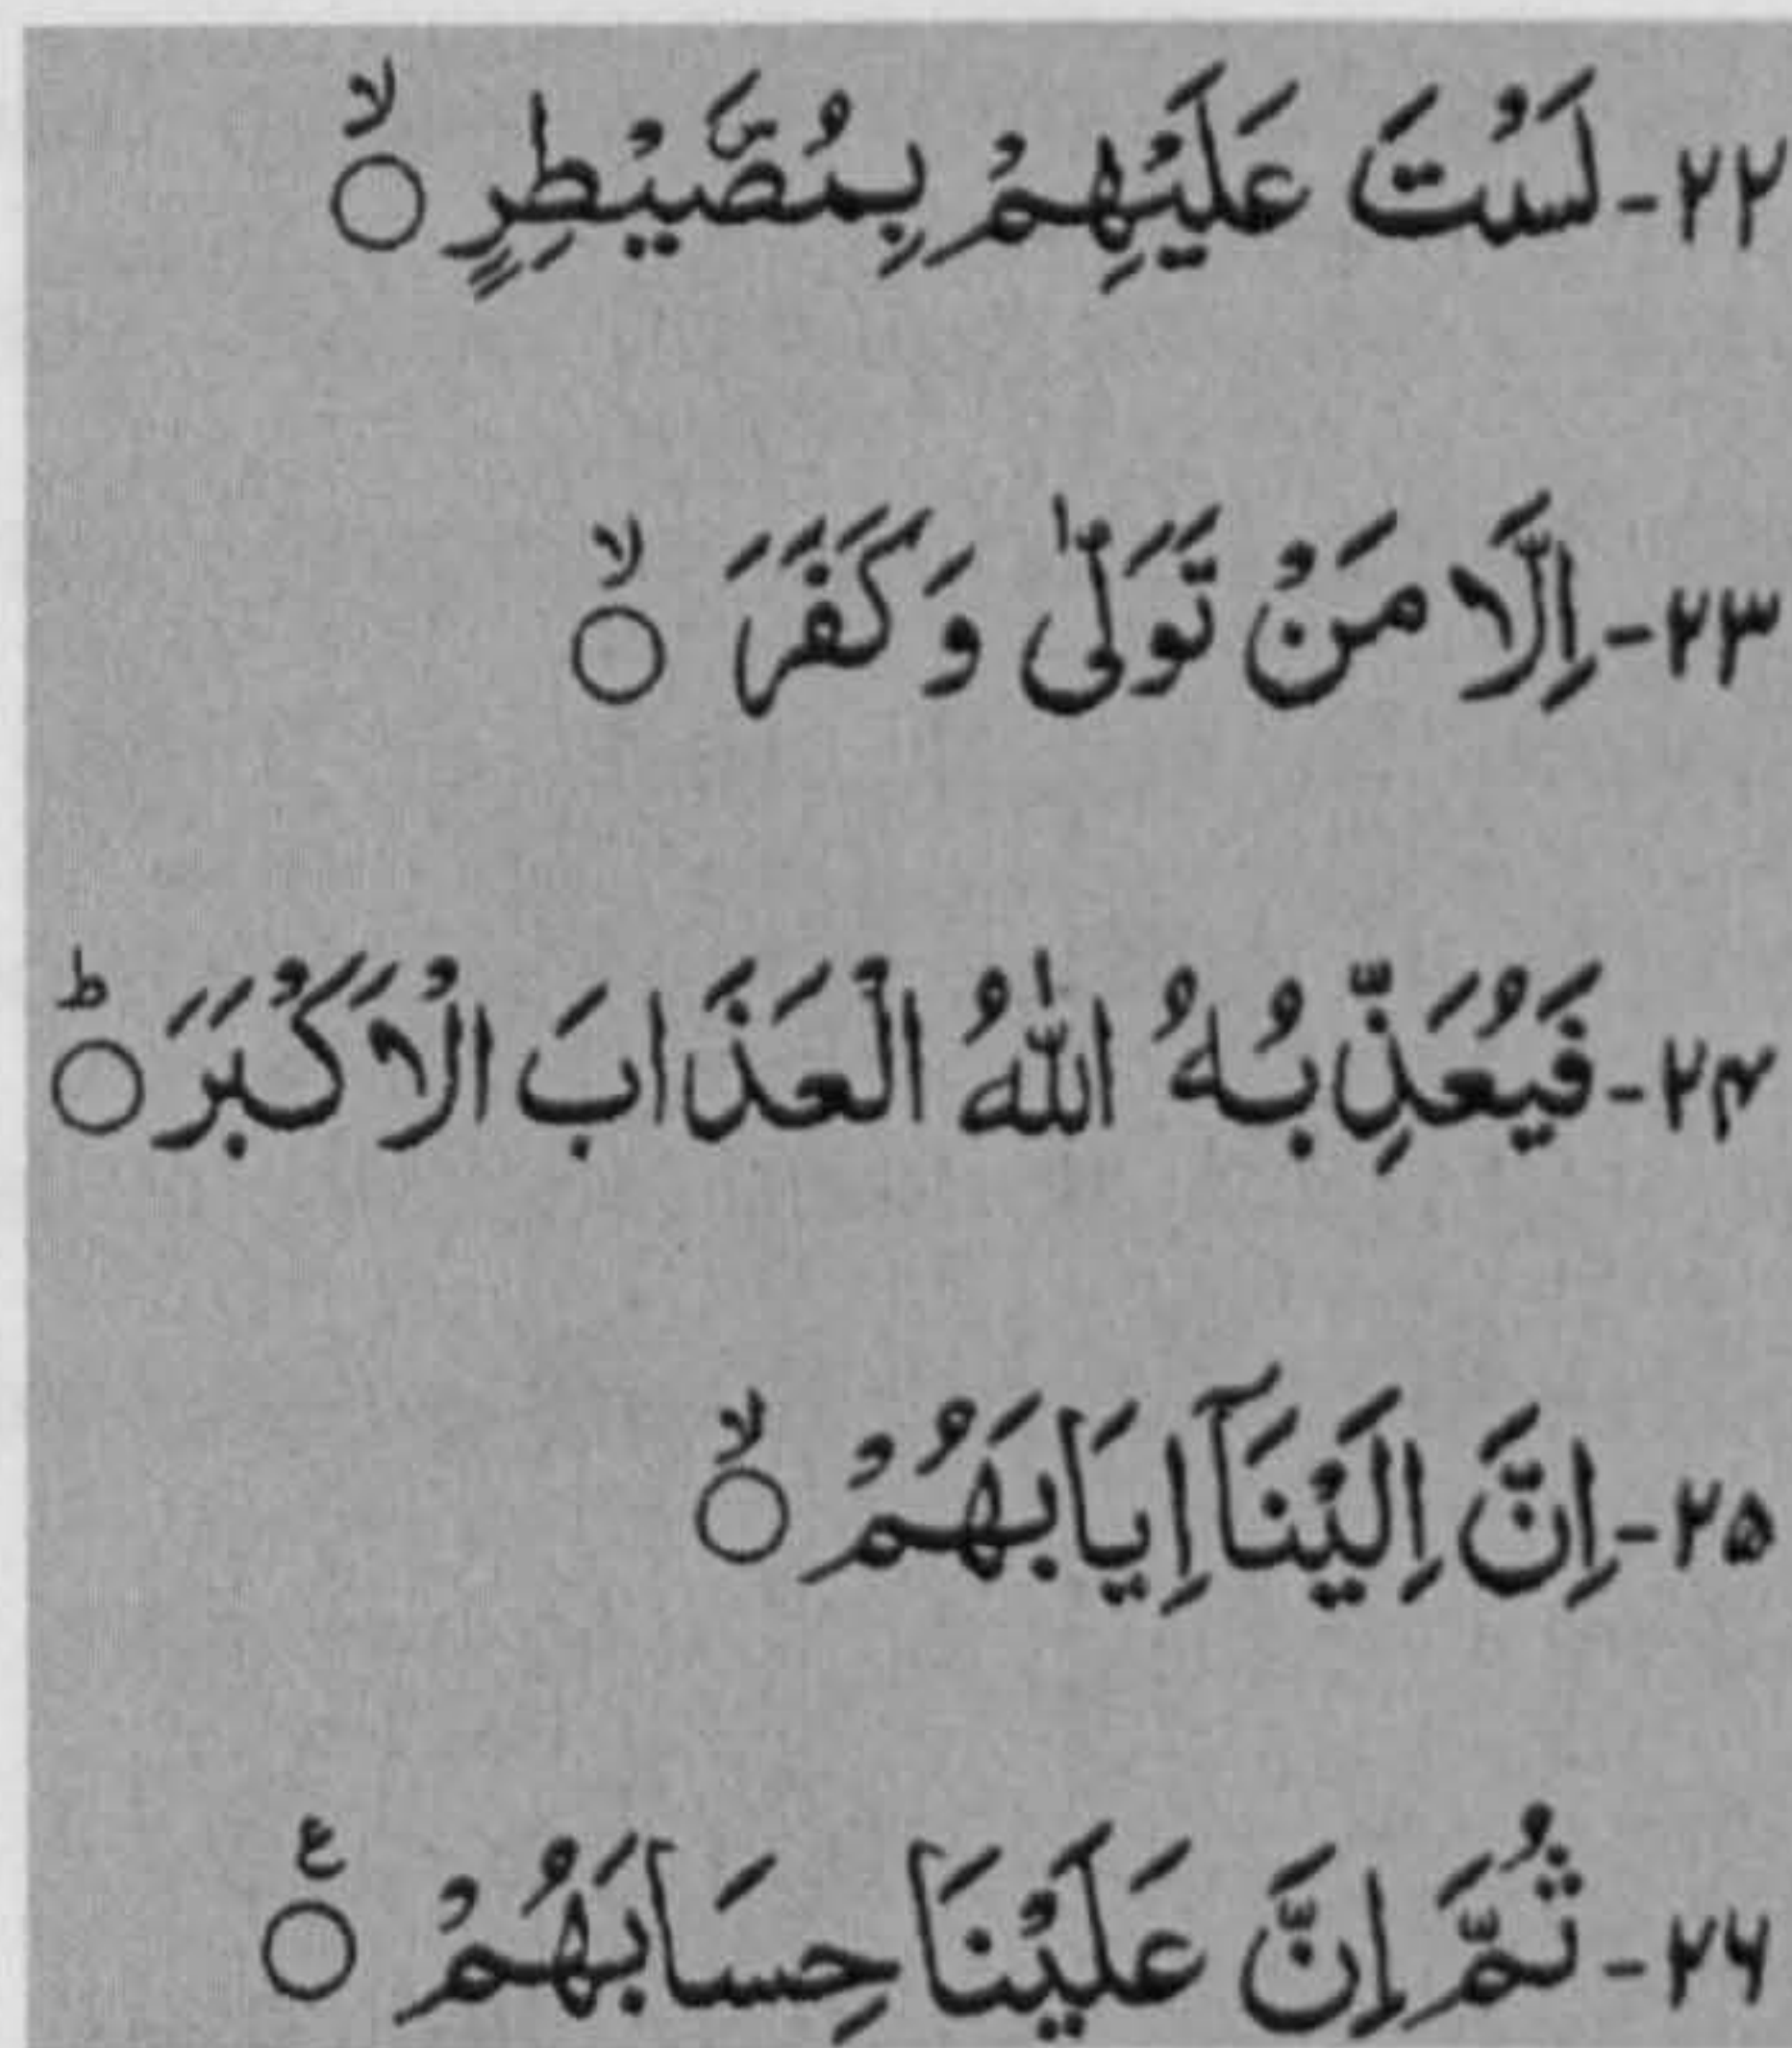 ۲۲- لَسْتَ عَلَيْهِمْ بِمُصَۜيْطِرٍ ۙ○
۲۳- اِلَّا مَنْ تَوَلّٰى وَكَفَرَ ۙ○
۲۴- فَيُعَذِّبُهُ اللّٰهُ الْعَذَابَ الْاَكْبَرَ ؕ○
۲۵- اِنَّ اِلَيْنَآ اِيَابَهُمْ ۙ○
۲۶- ثُمَّ اِنَّ عَلَيْنَا حِسَابَهُمْ ○ع